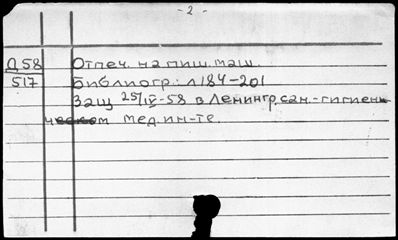 - 2 -
Д58 Отпеч. на пиш. маш.
517 Библиогр.: л 184-201
Защ 25/IV-58 в Ленингр. сан.-гигиени-
ческом мед. ин-те.